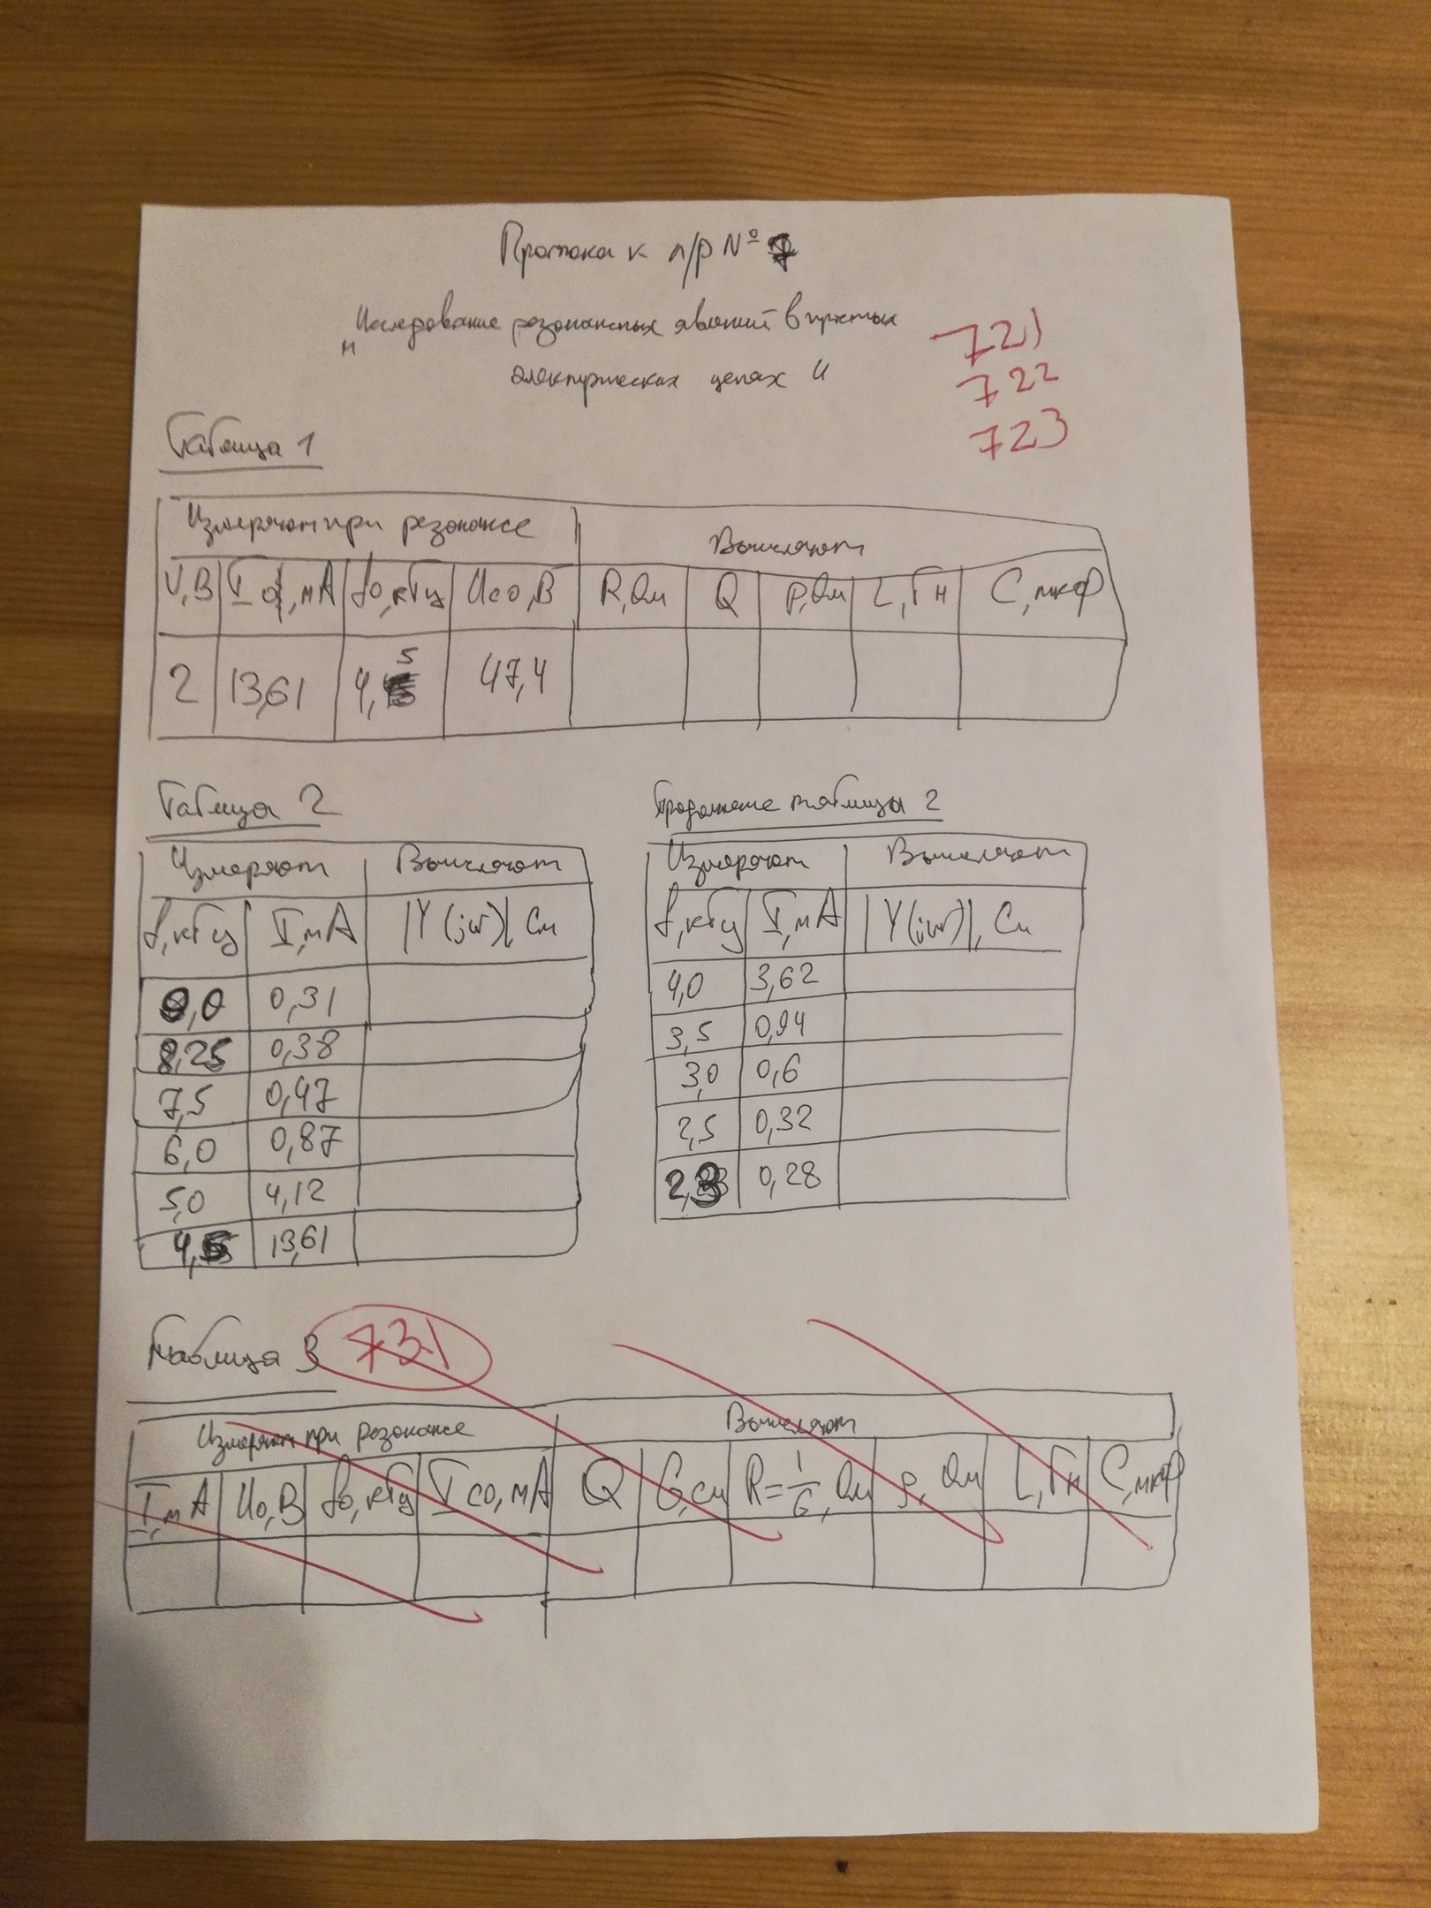 Протокол к л/р № 7
"Исследование резонансных явлений в простых
электрических цепях"
721
722
723
Таблица 1
Измеряют при резонансе Вычисляют
U,В I0,мА f0,кГц Uc0,В R,Ом Q ρ,Ом L,Гн C,мкФ
2 13,61 4,5 47,4
Таблица 2
Измеряют Вычисляют
f,кГц I,мА |Y(jω)|, См
9,0 0,31
8,25 0,38
7,5 0,47
6,0 0,87
5,0 4,12
4,5 13,61
Продолжение таблицы 2
Измеряют Вычисляют
f,кГц I,мА |Y(jω)|, См
4,0 3,62
3,5 0,94
3,0 0,6
2,5 0,32
2,3 0,28
Таблица 3 731
Измеряют при резонансе Вычисляют
I,мА U0,В f0,кГц Ic0,мА Q G,См R=1/G,Ом ρ,Ом L,Гн C,мкФ